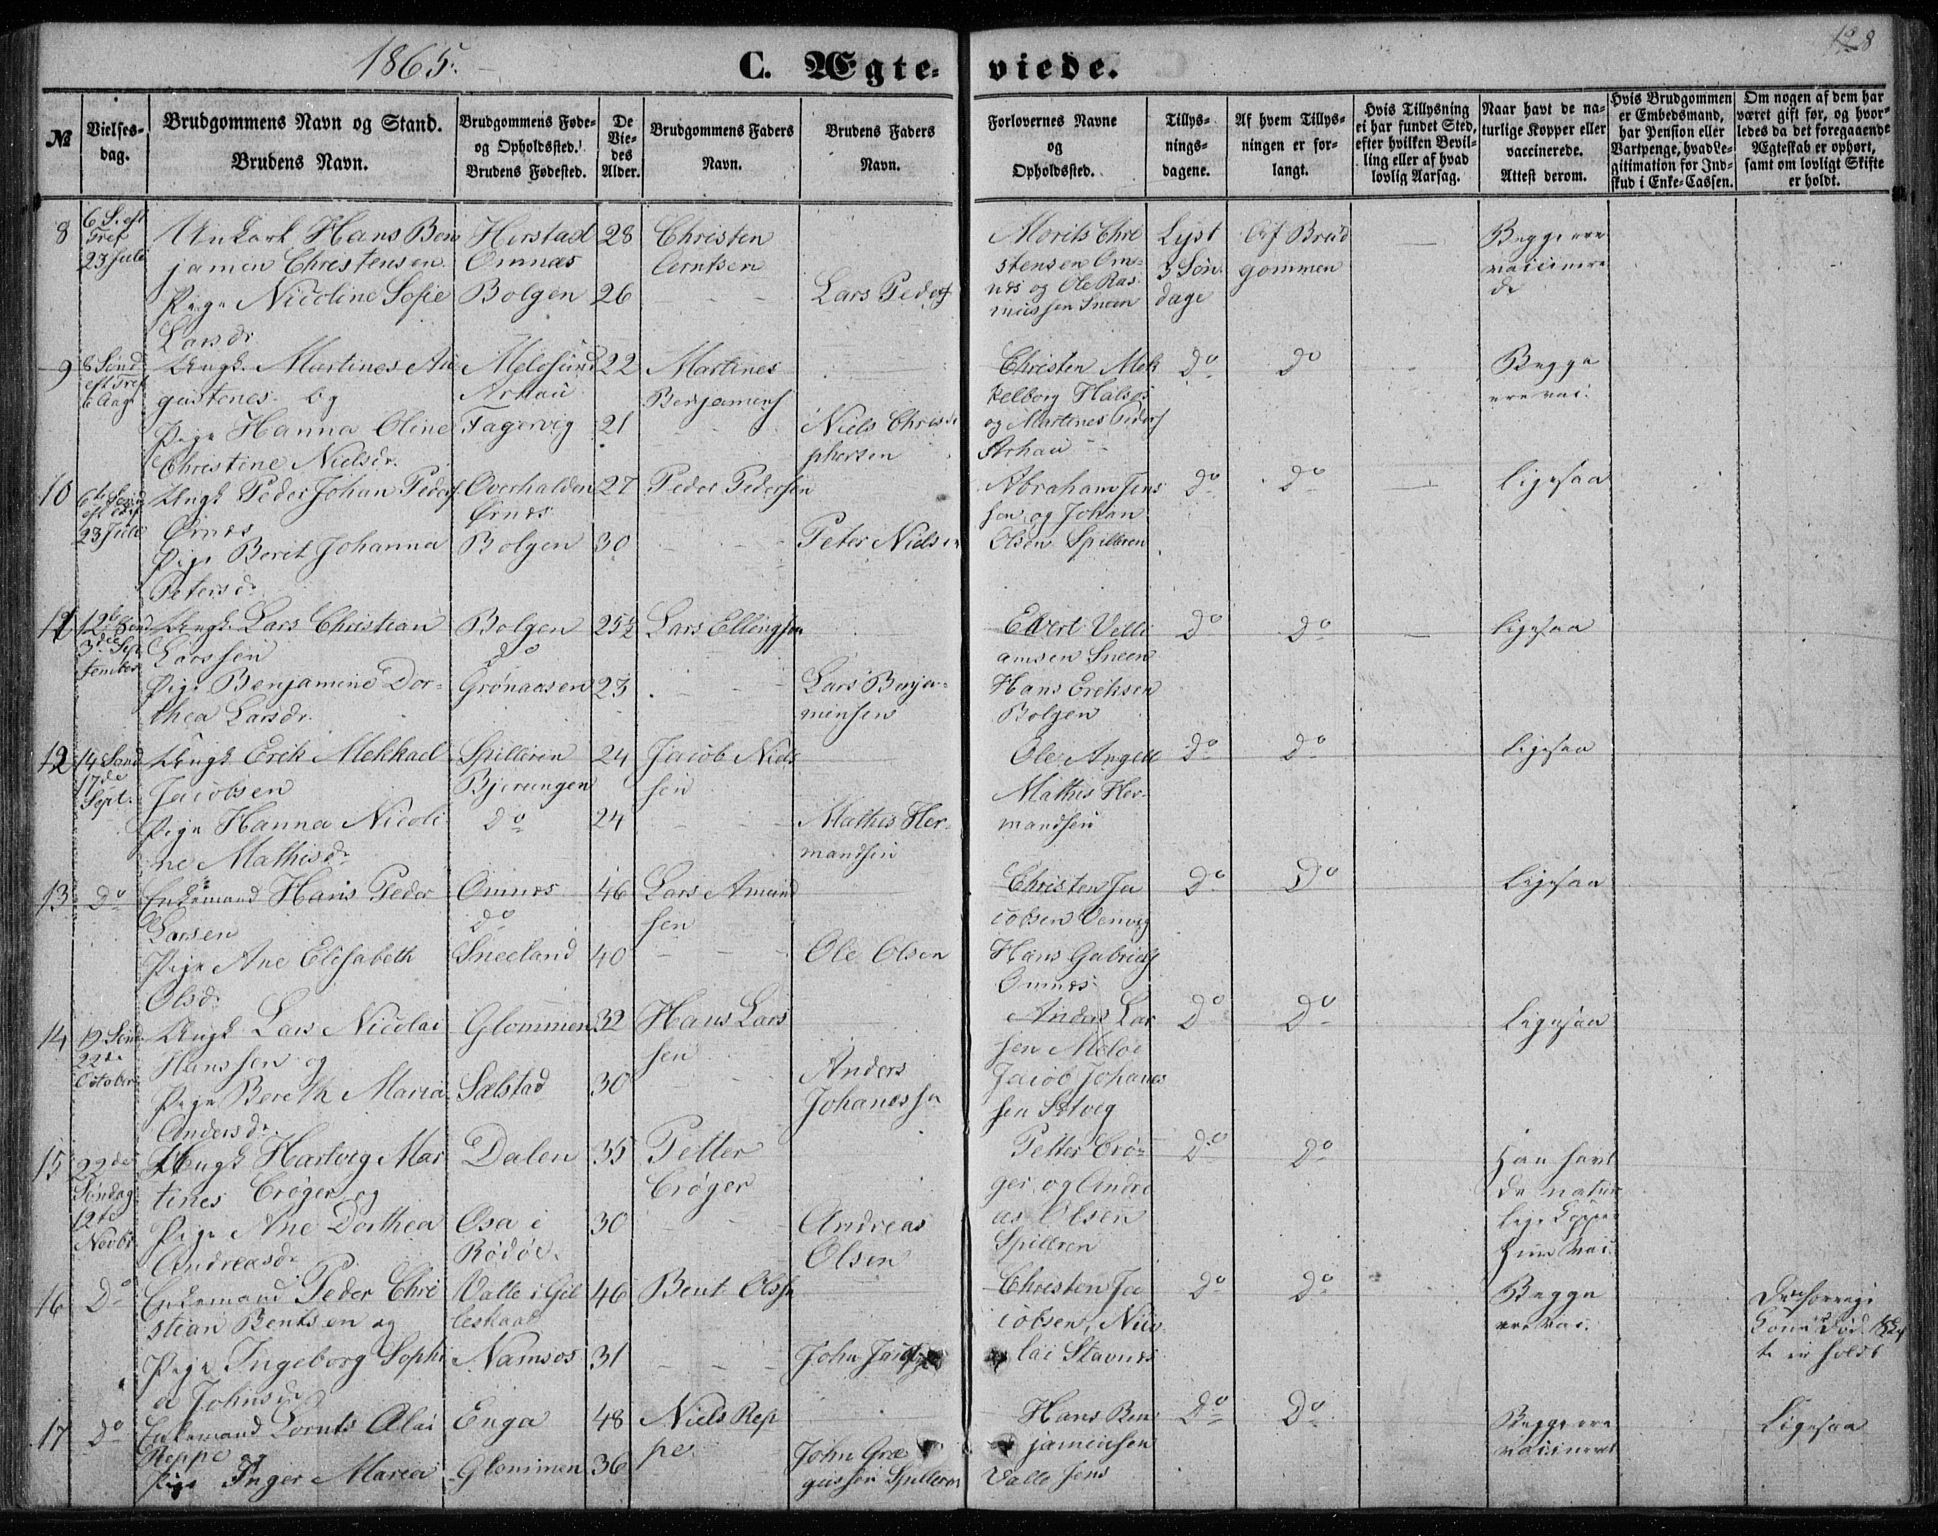 1865.
C. Ægte-
viede.
128
№
Vielses-
dag.
Brudgommens Navn og Stand.
Brudens Navn.
Brudgommens Føde-
og Opholdssted.
Brudens Fødested.
De
Vie-
des
Alder.
Brudgommens Faders
Navn.
Brudens Faders
Navn.
Forlovernes Navne
og
Opholdssted.
Tillys-
nings-
dagene.
Af hvem Tillys-
ningen er for-
langt.
Hvis Tillysning
ei har fundet Sted,
efter hvilken Bevil-
ling eller af hvad
lovlig Aarsag.
Naar havt de na-
turlige Kopper eller
vaccinerede.
Attest derom.
Hvis Brudgommen
er Embedsmand,
har Pension eller
Vartpenge, hvad Le-
gitimation for Ind-
skud i Enke-Cassen.
Om nogen af dem har
været gift før, og hvor-
ledes da det foregaaende
Ægteskab er ophørt,
samt om lovligt Skifte
er holdt.
8
6 S. eft
Tref
23 Juli
Unkark Hans Ben
jamin Christensen
Pige Nicoline Sofie
Larsdr
Herstad
Omnæs
Bolgen
28
26
Christen
Lars Peders
Morits Chri
stensen Om-
næs og Ole Ras
mussen Sneen
Lyst
3 Søn
dage
Af Brud
gommen
Begge ere
vaccinere
de
9
8 Sønd
eft Tref
6 Aug
Ungk. Martines Au
gustenes og
Pige Hanna Oline
Christine Nielsdr.
Meløsund
Arhau
Fagervig
22
21
Martines
Benjamens
Niels Christo
phersen
Christen Mek
kelborg Halsøs
og Martines Peders
Arhau
Do
Do
Begge
ere vac.
10
6te Sønd
eft Tref
23 Juli
Ungk Peder Johan Peders.
Ørnæs
Pige Berit Johanna
Petersdr
Overhalden
Ørnæs
Bolgen
27
30
Peder Pedersen
Peter Nielsen
Abraham Jens
sen og Johan
Olsen Spilleren
Do
Do
Ligesaa
11
12te Sønd
3die Sep
tember
Ungk. Lars Christian
Larssen
Pige Benjamine Dor-
thea Larsdr.
Bolgen
do
Grønaasen
25½
23
Lars Ellingsen
Lars Benja-
minsen
Elvert Velli
amsen Sneen
Hans Eriksen
Bolgen
Do
Do
Ligesaa
12
14 Sønd
17de
Sept.
Ungk Erik Mekkael
Jacobsen
Pige Hanna Nicoli
ne Mathisdr
Spilleren
Bjerangen
do
24
24
Jacob Niels
sen
Mathis Her-
mandsen
Ole Angell
Mathis Her-
mandsen
Do
Do
Ligesaa
13
Do
Enkemand Hans Peder
Larsen
Pige Ane Elisabeth
Olsdr
Omnæs
do
Sneeland
46
40
Lars Amund
sen
Ole Olsen
Christen Ja
cobsen Venvig
Hans Gabriels
Omnæs
Do
Do
Ligesaa
14
19 Sønd
22de
October
Ungk Lars Nicolai
Hanssen og
Pige Bereth Maria
Andersdr.
Glommen
Sælstad
32
30
Hans Lars
sen
Anders
Johanessen
Anders Lar
sen Meløe
Jacob Johanes
sen Setvig
Do
Do
Ligesaa
15
22de
Søndag
12te
Novbr.
Ungk Hartvig Mar
tines Crøger og
Pige Ane Dorthea
Andreasdr
Dalen
Osa i
Rødøe
35
30
Petter
Crøger
Andreas
Olsen
Petter Crø-
ger og Andre
as Olsen
Spilleren
Do
Do
Han havt
de natur
lige Kopper
Hun Vac.
16
Do
Enkemand Peder Chri
stian Bentsen og
Pige Ingeborg Sophi
a Johnsdr
Valle i Gil
leskaal
Namsos
46
31
Bent Olss
John
Christen Ja
cobsen, Nico
lai Stavnes
Do
Do
Begge
ere vac.
Den forrige
Kone død
17
Do
Enkemand Lornts Olai
Reppe og
Pige Inger Maria
Enga
Glommen
48
36
Niels Rep
pe
John Gre
gussen Spilleren
Hans Ben
jaminsen
Valle Jens
Do
Do
Begge ere
vaccineret
Ligesaa